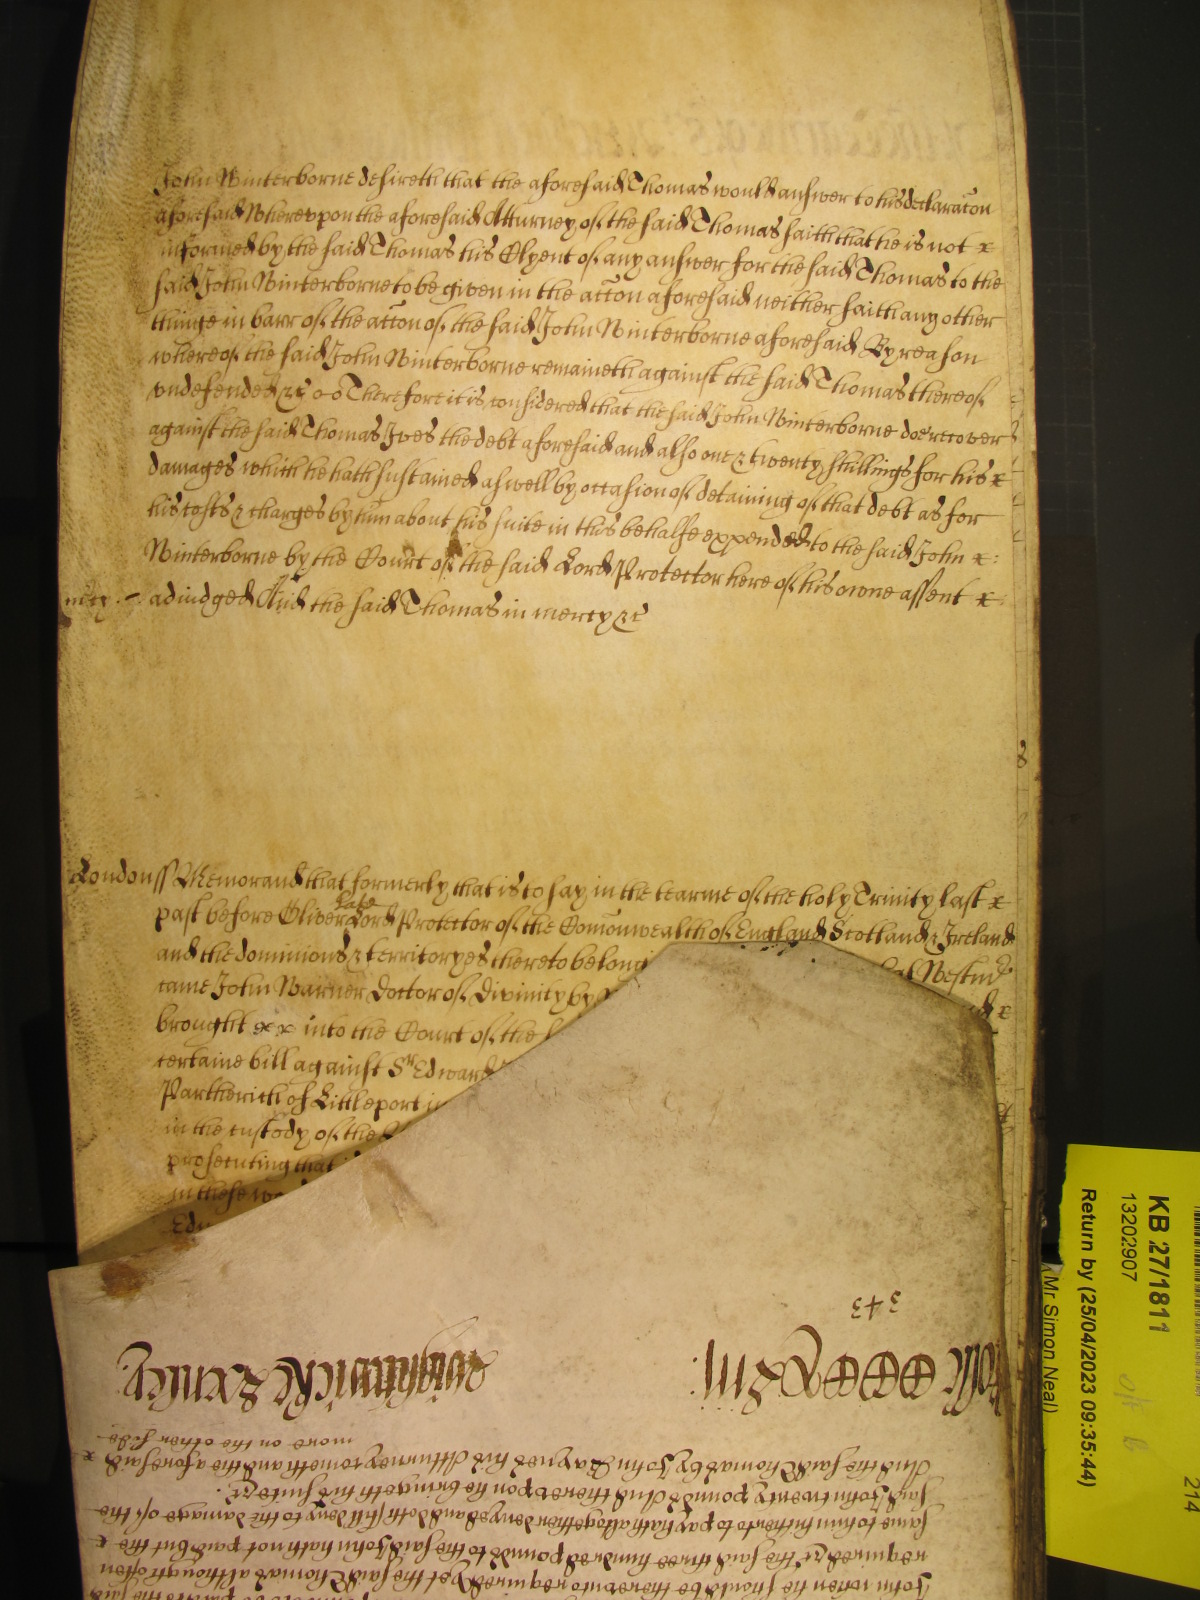 John Winterborne desireth that the aforesaid Thomas would answer to his declaracon
aforesaid Wherevpon the aforesaid Atturney of the said Thomas saith that he is not x
informed by the said Thomas his Clyent of any answer for the said Thomas to the
said John Winterborne to be given in the accon aforesaid neither saith any other
thinge in barr of the accon of the said John Winterborne aforesaid By reason
whereof the said John Winterborne remaineth against the said Thomas thereof
vndefended &c Therefore it is considered that the said John Winterborne doe recover
against the said Thomas Ives the debt aforesaid and also one & twenty shillings for his x
damages which he hath sustained aswell by occasion of detaining of that debt as for
his costs & charges by him about his suite in this behalfe expended to the said John x
Winterborne by the Court of the said Lord Protector here of his owne assent x
mcy adiudged And the said Thomas in mercy &c
London ss Memorand that formerly that is to say in the tearme of the holy Trinity last x
past before Oliver late Lord Protector of the Comonwealth of England Scotland & Ireland
and the dominions & territoryes thereto belong
came John Warner Doctor of Divinity by
brought x x into the Court of the
certaine bill against Sr Edward
Partherich of Littleport in
in the custody of the
prosecuting that
in these wo
Edw
543
more on the other side
And the said Thomas by John Rayned his Atturney cometh and the aforesaid x
said John twenty pounds And therevpon he bringeth his suite &c.
same to him hitherto to pay hath altogether denyed and doth still deny to the damage of the
required &c the said three hundred pounds to the said John hath not paid but the x
John when he should be therevnto required Yet the said Thomas although often
KB 27/1811
13202907
Return by (25/04/2023 09:35:44)
Mr Simon Neal)
214